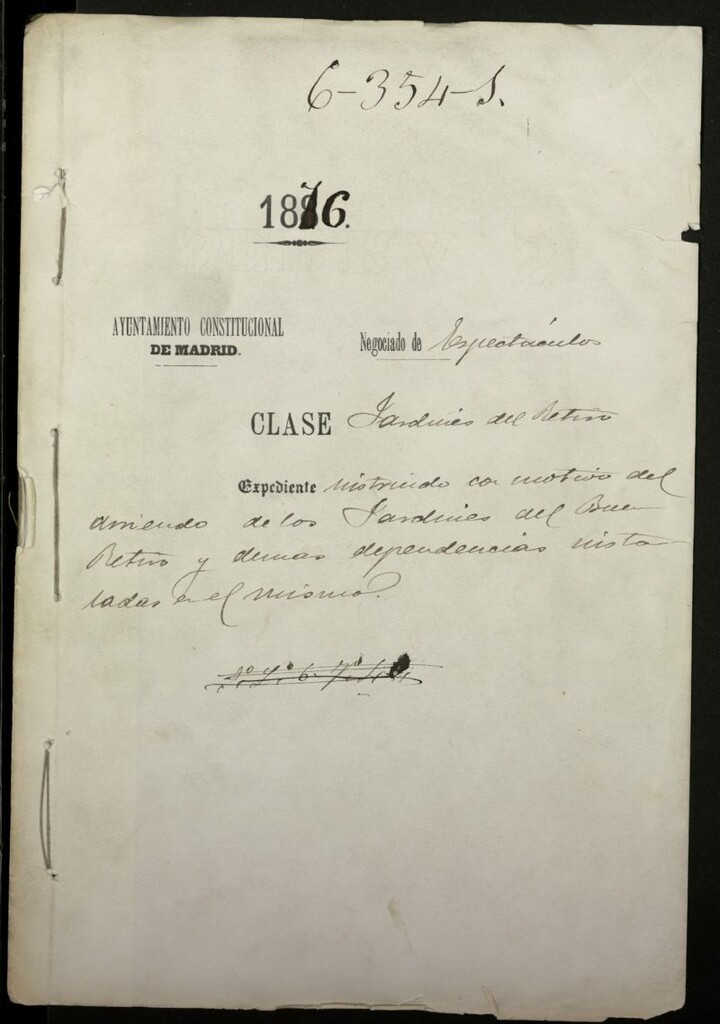 6-354-1.
1876.
AYUNTAMIENTO CONSTITUCIONAL
DE MADRID.
Negociado de Espectáculos
CLASE Jardines del Retiro
Expediente instruido con motivo del
arriendo de los Jardines del Buen
Retiro y demas dependencias insta
ladas en el mismo.